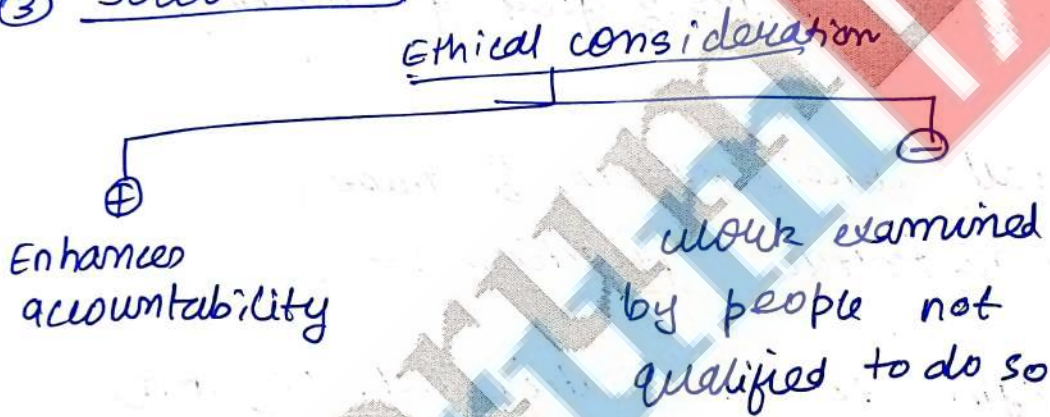 ③
Ethical consideration
⊕
⊖
Enhances
accountability
work examined
by people not
qualified to do so